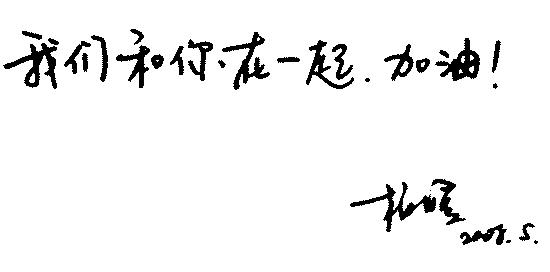 我们和你在一起.加油!
2008.5.